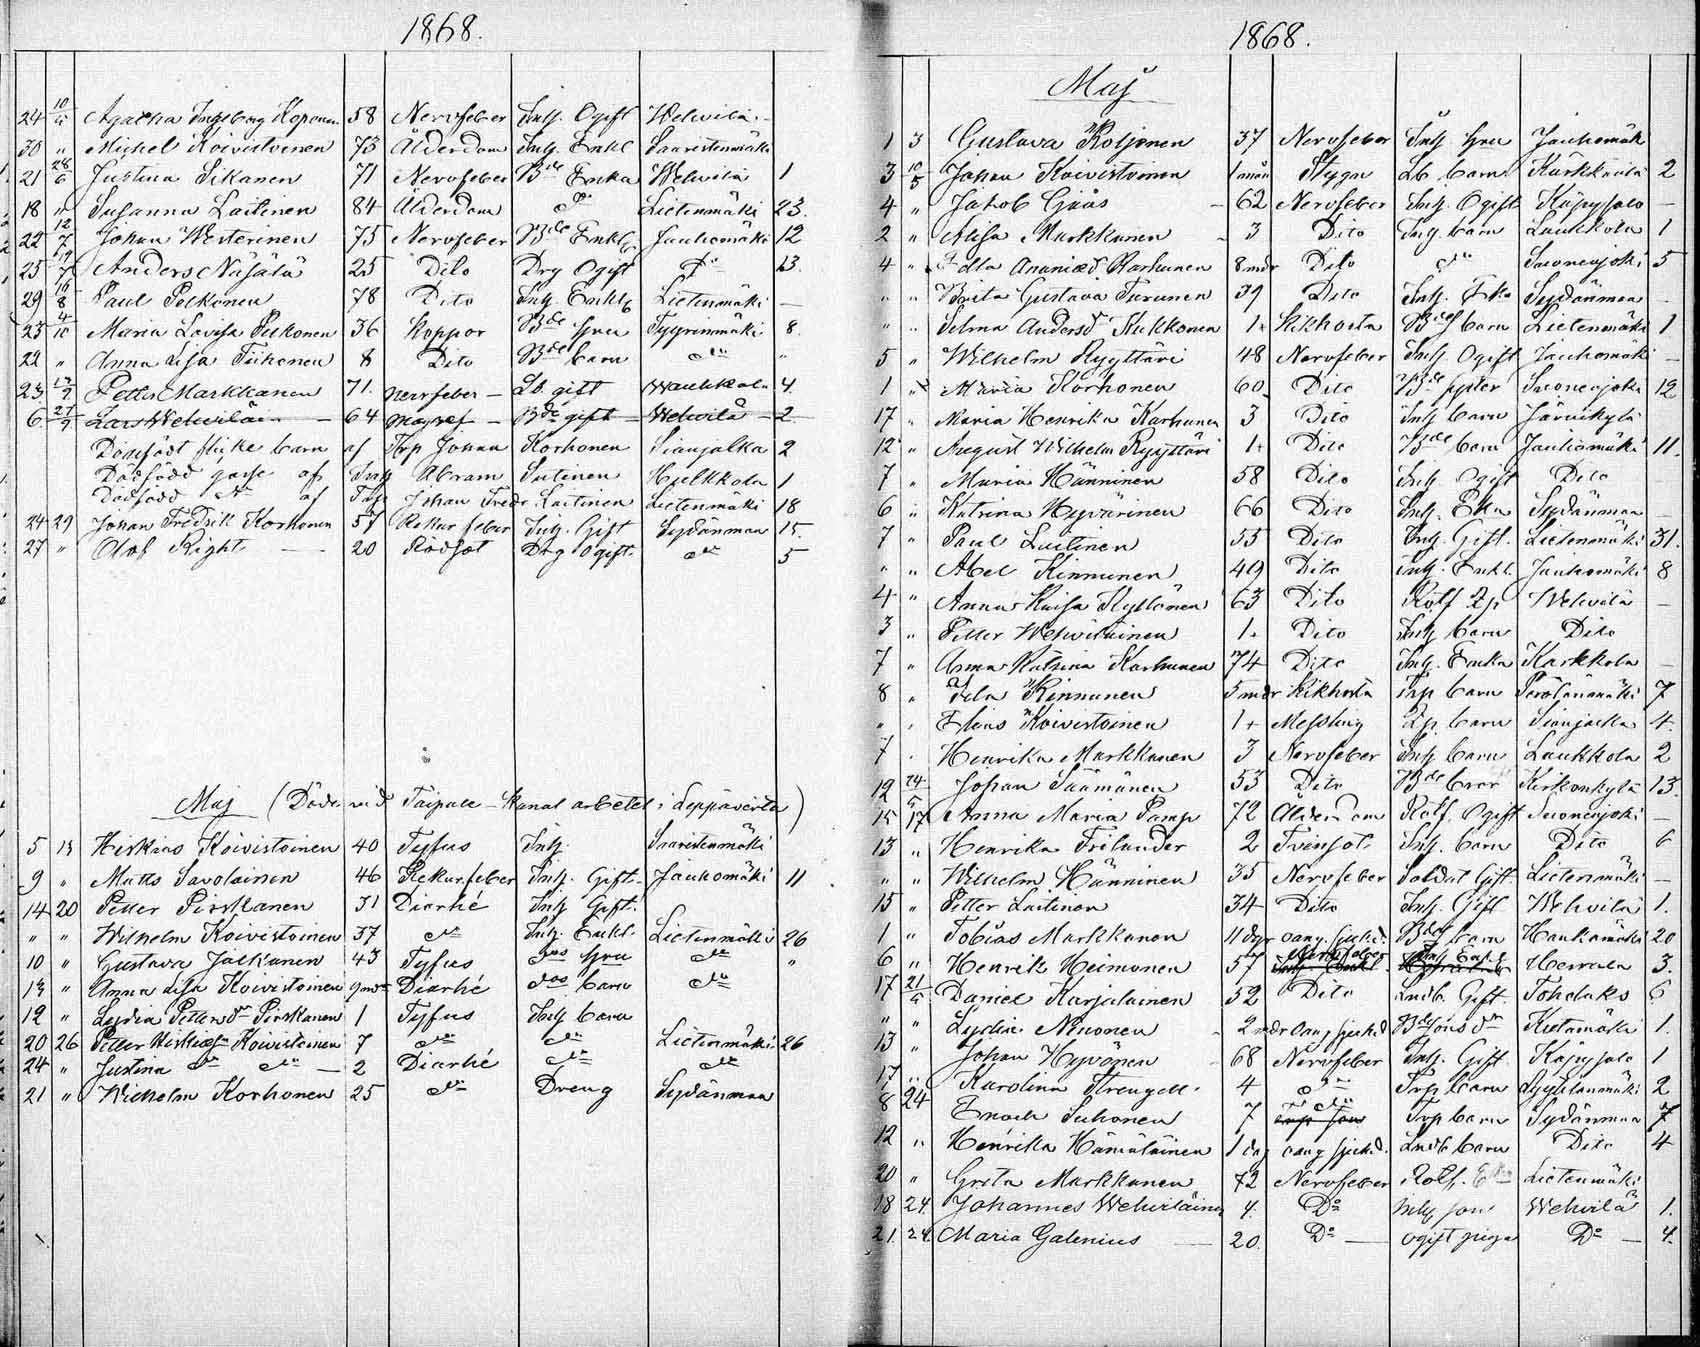 1868.
24 10/4 Agatha Ingeborg Koponen 58 Nervfeber Inh. Ogift Wehvilä
30 " Michel Koivistoinen 73 Ålderdom Inh. Enkl Saaristenmäki
21 28/6 Justina Sikanen 71 Nervfeber Bde Enka Wehvilä 1
18 " Susanna Laitinen 84 Ålderdom do Lietenmäki 23.
22 12/7 Johan Westerinen 75 Nervfeber Bde Enkl Jauhomäki 12
25 19/7 Anders Näjälä 25 Dito Drg Ogift do 13.
29 16/8 Paul Pelkonen 78 Dito Inh. Enkl Lietenmäki —
23 4/10 Maria Lovisa Pulkonen 36 Koppor Bde hru Tyyrinmäki 8.
22 " Anna Lisa Tiihonen 8 Dito Bde barn do "
23. 9 Petter Markkanen 71. nervfeber — Lb. gift Waukkola 4.
6 27/9 Lars Wehviläin 64 Bde gift — Wehvilä — 2
Dödfödt flicke barn af Trp Johan Korhonen Sianjalka 2
Dödfödd gosse af Inh Abram Sutinen Hulkkola 1
Dödfödd do af Trp Johan Fredr. Laitinen Lietenmäki 18
24 29 Johan Fredrik Korhonen 57 Rekurfeber Inh. Gift Sydänmaa 15.
27 " Olof Right — 20 Rödsot Drg Ogift do 5
Maj (Döde vid Taipale — Kanal arbetet i Leppävirta)
5 13 Hiskias Koivistoinen 40 Tyfus Inh. Saaristenmäki
9 " Matts Savolainen 46 Rekurfeber Inh. Gift. Jauhomäki 11
14 20 Petter Pirskanen 31 Diarhé Inh Gift.
" " Wilhelm Koivistoinen 37 do Inh. Enkl. Lietenmäki 26
10 " Gustava Jalkanen 43 Tyfus dos hru do "
13 " Anna Lisa Koivistoinen 9 mdr Diarhé dos barn do
12 " Lydia Pettersdr Pirskanen 1 Tyfus Inh barn
20 26 Petter Koivistoinen 7 do do Lietenmäki 26
24 " Justina do do — 2 Diarhé do do
21 " Wilhelm Korhonen 25 do Dreng Sydänmaa
1868.
Maj
1 3 Gustava Rotjonen 37 Nervfeber Inh hru Jauhomäk
3 10/5 Johan Koivistoinen 1 mån Stygn Lb barn Kurkkaala 2
4 " Jakob Gjäös — 62 Nervfeber Inh. Ogift Käpysalo —
2 " Alisa Markkanen — 3 Dito Inh. barn Laukkola 1
4 " Edla Ananiæd. Karhunen 8 mdr Dito do Suonenjoki 5
" " Brita Gustava Turunen 39 Dito Inh. Eka Sydänmaa —
" " Selma Andersd Kukkonen 1. Kikhosta Bde barn Lietenmäki 1
5 " Wilhelm Ryyttäri 48 Nervfeber Inh. Ogift Jauhomäki —
1 " Maria Korhonen 60 Dito Bde Suonenjoki 12
17 " Maria Henrika Karhunen 3 Dito Inh barn Järvikylä
12 " August Wilhelm Ryyttäri 1. Dito Bde barn Jauhomäki 11.
7 " Maria Hänninen 58 Dito Inh. Ogift Dito
6 " Katrina Hyvärinen 66 Dito Inh. Eka Sydänmaa —
7 " Paul Luitinen 55 Dito Inh. Gift. Lietenmäki 31.
" " Abel Kinnunen 49 Dito Inh. Enkl. Jauhomäki 8
4 " Anna Kaisa Kyllönen 63 Dito Rotf Wehvilä —
3 " Petter Wehviläinen 1. Dito Inh barn Dito
7 " Anna Katrina Karhunen 74 Dito Inh. Enka Karkkola —
8 " Ida Kinnunen 5 mdr Kikhosta Trp barn 7
" " Elias Koivistoinen 1. Messling barn Sianjalka 4.
7 " Henrika Markkanen 3 Nervfeber Inh barn Laukkola 2
12 24/5 Johan Säämänen 53 Dito Bde Kirkonkylä 13.
15 17 Anna Maria Pamp 72 Ålderdom Rotf. Ogift Suonenjoki —
13 " Henrika Frilander 2 Tvinsot. Inh. barn Dito 6
" " Wilhelm Hänninen 35 Nervfeber Soldat Gift Lietenmäki —
15 " Petter Laitinen 34 Dito Inh. Gift Wehvilä 1.
1 " Tobias Markkanen 11 dgr oang. sjukd. Bde barn Haukamäki 20
6 " Henrik Heimonen 57 Nervfeber Herrala 3.
17 21/5 Daniel Karjalainen 52 Dito Lndb. Gift Tohdaks 6
" " Lydia Ninonen — 2 mdr oang sjukd Kutumäki 1.
13 " Johan Hyvönen 68 Nervfeber Inh. Gift Käpysalo 1
17 " Karolina Strengell 4 do Trp barn Lyytilänmäki 2
8 24 Enock Suhonen 7 do Trp barn Sydänmaa 7
12 " Henrika Hämäläinen 1 dag oang sjukd. Lndb barn Dito 4
20 " Greta Markkanen 72 Nervfeber Rotf. Lietenmäki
18 24. Johannes Wehviläine 4. Do Inh son Wehvilä 1.
21. 24. Maria Galenius — 20. Do — ogift piga Do — 4.